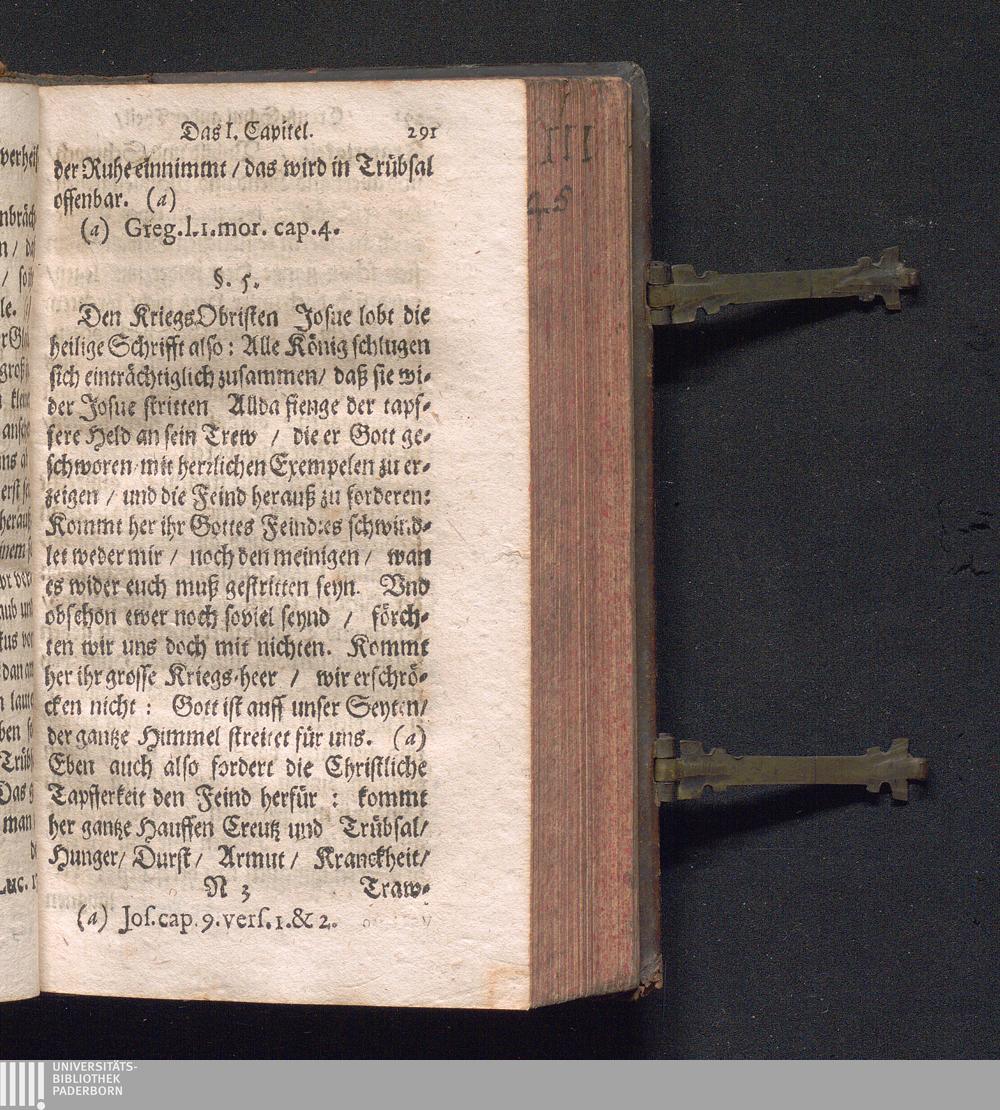 Das I. Capitel. 291
der Ruhe einnimmt / das wird in Trübsal
offenbar. (a)
(a) Greg.l.1.mor. cap.4.
§. 5.
Den KriegsObristen Josue lobt die
heilige Schrifft also : Alle König schlugen
sich einträchtiglich zusammen/ daß sie wi-
der Josue stritten Allda fienge der tapf-
fere Held an sein Trew / die er Gott ge-
schworen mit herrlichen Exempelen zu er-
zeigen / und die Feind herauß zu forderen:
Kommt her ihr Gottes Feind: es schwind-
let weder mir / noch den meinigen / wan
es wider euch muß gestritten seyn. Vnd
obschon ewer noch soviel seynd / förch-
ten wir uns doch mit nichten. Kommt
her ihr grosse Kriegs-heer / wir erschrö-
cken nicht : Gott ist auff unser Seyten/
der gantze Himmel streitet für uns. (a)
Eben auch also fordert die Christliche
Tapfferkeit den Feind herfür : kommt
her gantze Hauffen Creutz und Trübsal/
Hunger/ Durst/ Armut/ Kranckheit/
N 3 Traw-
(a) Jos.cap. 9. vers. 1. & 2.
III
45
UNIVERSITÄTS-
BIBLIOTHEK
PADERBORN